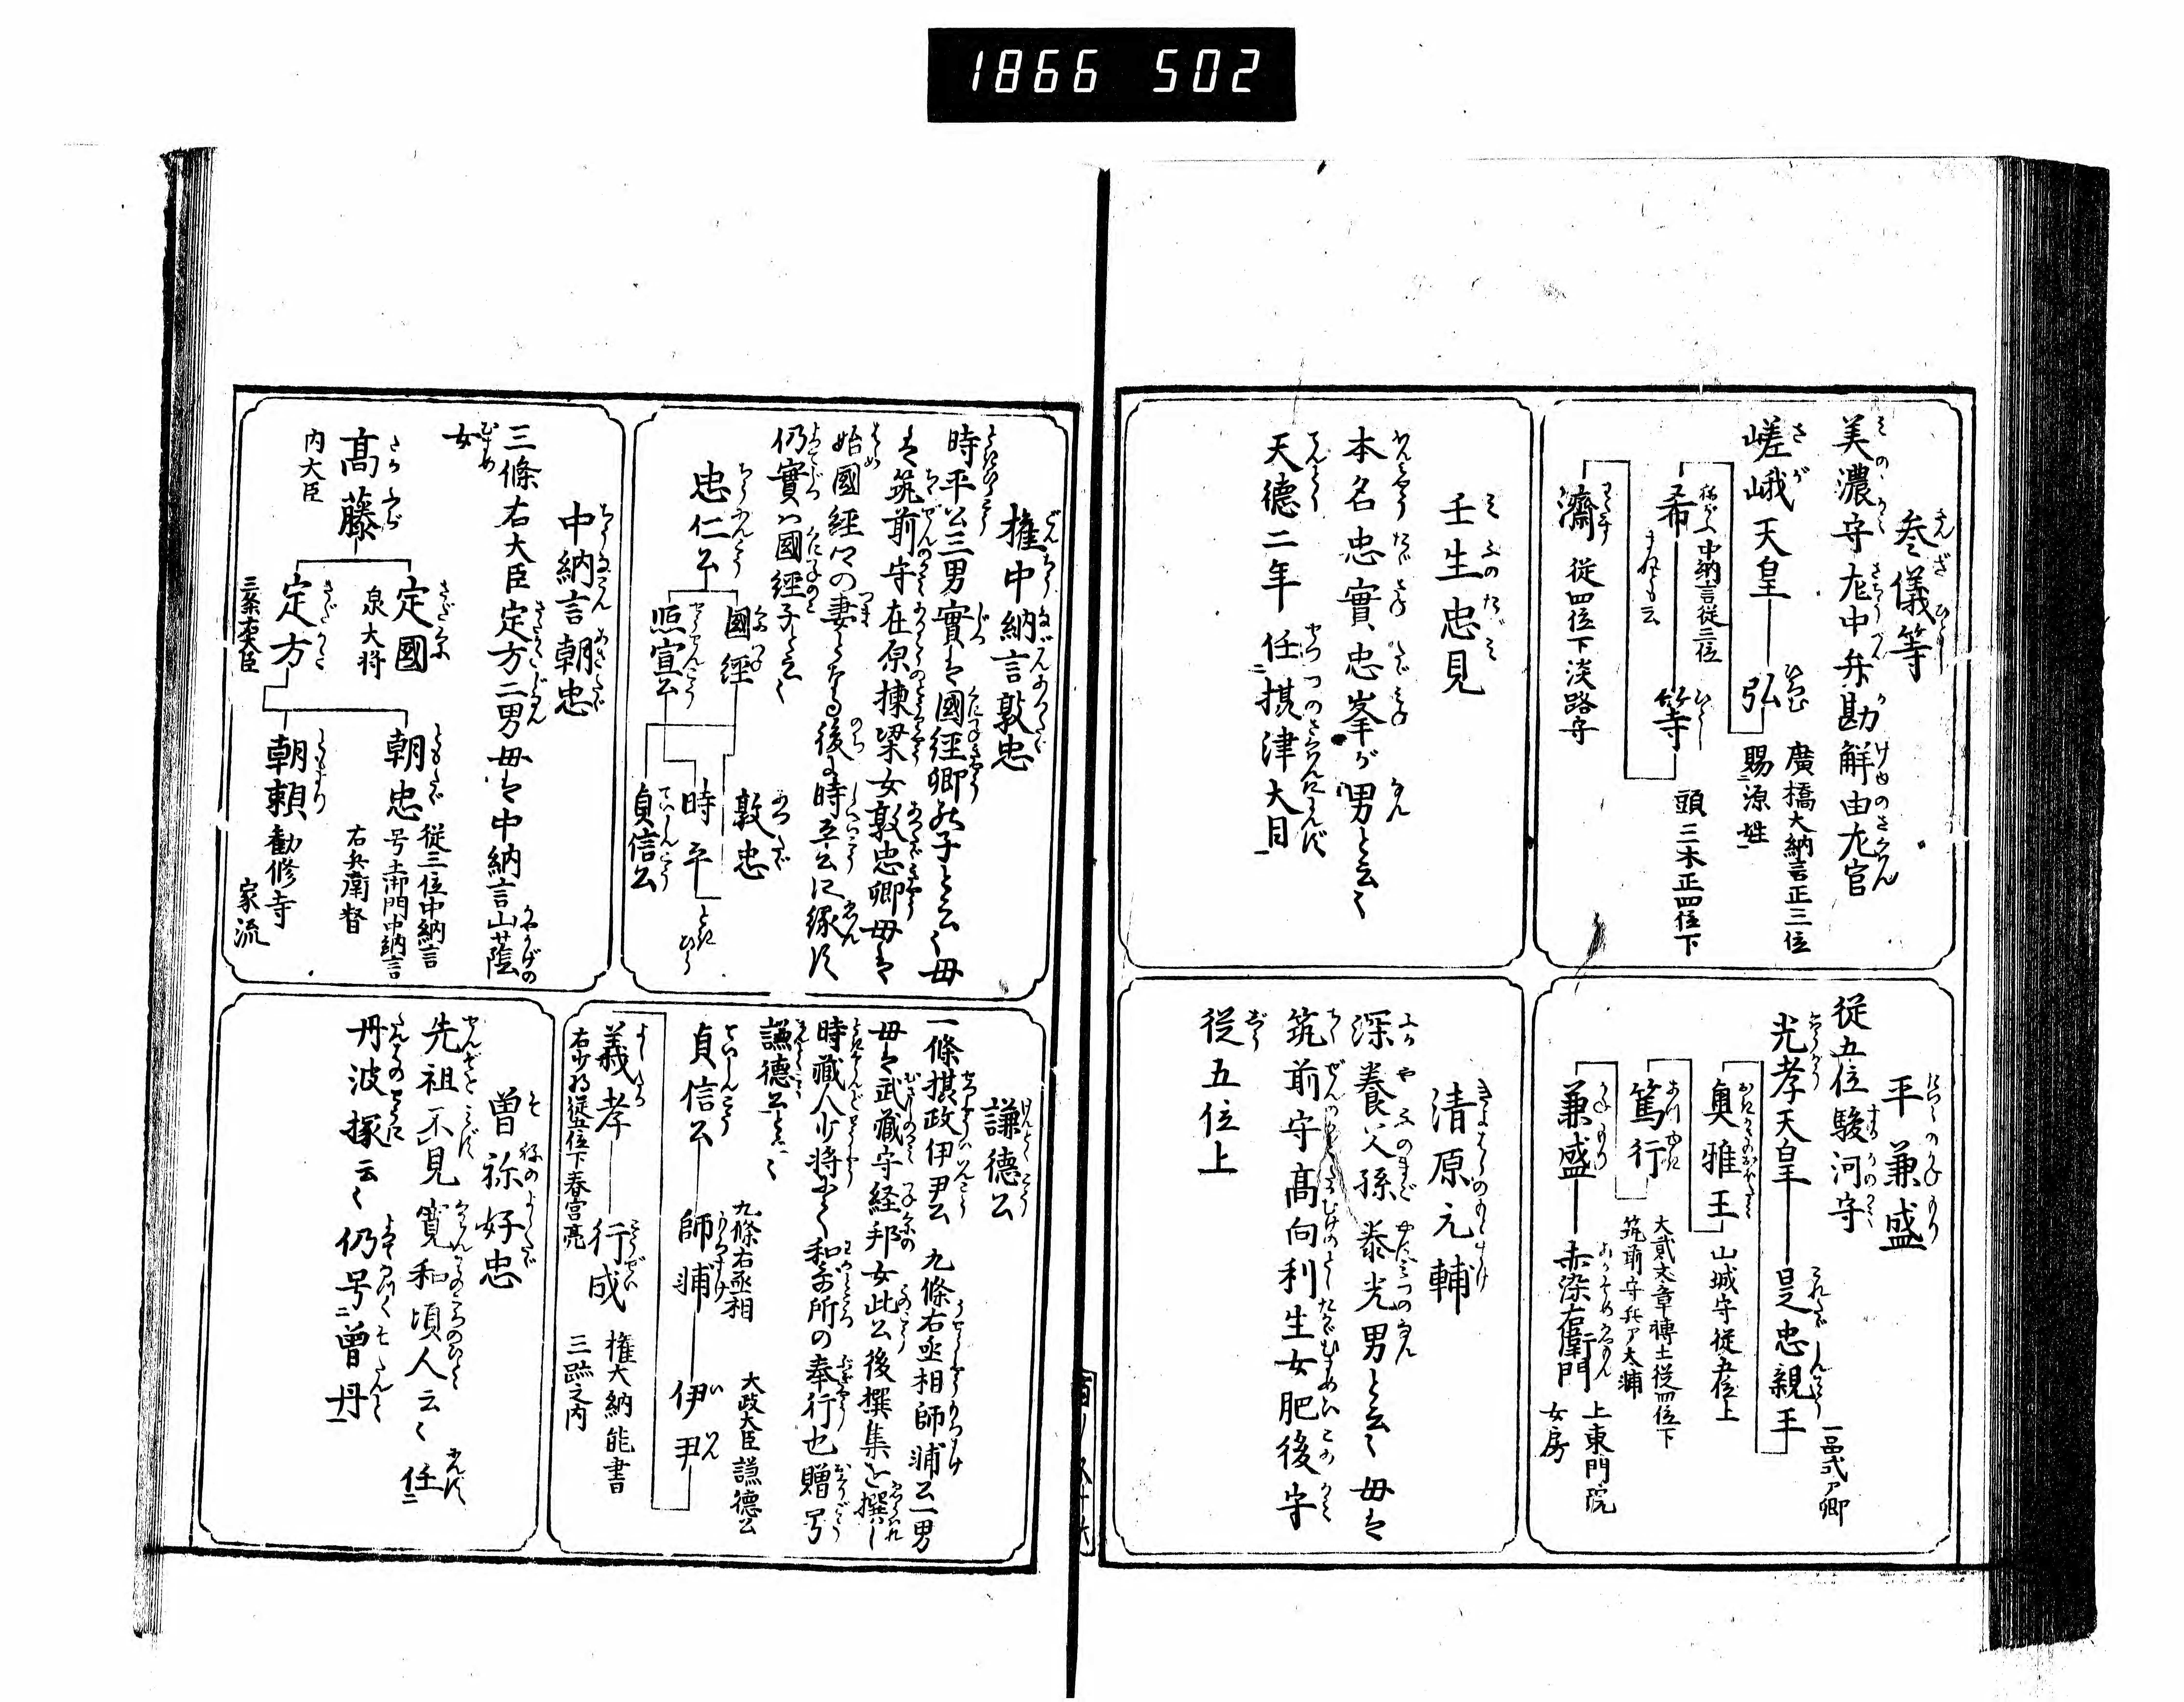 1866 502
参儀等
美濃守左中弁勘解由左官
嵯峨天皇
弘
廣橋大納言正三位
賜源姓
希
中納言従三位
等
頭三木正四位下
濟
従四位下淡路守
壬生忠見
本名忠實忠峯が男と云々
天德二年 任攝津大目
平兼盛
従五位駿河守
光孝天皇
是忠親王
一品式ア卿
興雅王
山城守従五位上
篤行
大貳文章博士従四位下
筑前守兵ア大輔
兼盛
赤染右衛門
上東門院
女房
清原元輔
深養父孫泰光男と云々母は
筑前守髙向利生女肥後守
従五位上
権中納言敦忠
時平公三男實は國經卿の子と云々母
は筑前守在原棟梁女敦忠卿母は
始國經の妻となる後に時平公に嫁す
仍實ハ國經子と云々
忠仁公
國經
敦忠
照宣公
時平
貞信公
中納言朝忠
三條右大臣定方二男母は中納言山蔭
女
髙藤
内大臣
定國
泉大将
定方
三条右大臣
朝忠
従三位中納言
号土御門中納言
右兵衛督
朝頼
勧修寺
家流
謙德公
一條摂政伊尹公 九條右丞相師輔公一男
母は武蔵守経邦女此公後撰集を撰し
時蔵人少将にて和哥所の奉行也贈号
謙德公と云々
貞信公
師輔
九條右丞相
伊尹
大政大臣謙德公
義孝
右少将従五位下春宮亮
行成
権大納言能書
三跡之内
曽祢好忠
先祖不見寛和頃人云々 任
丹波掾云々仍号曽丹